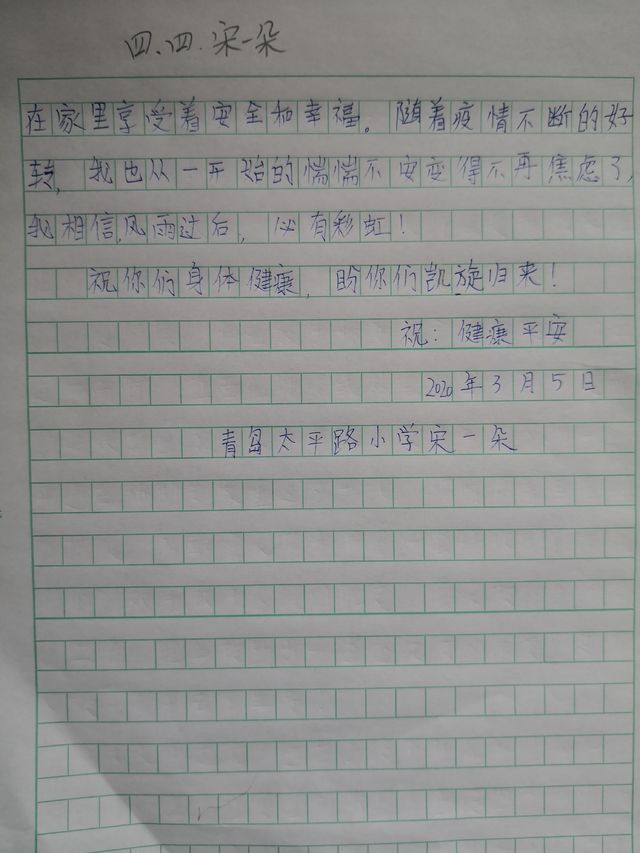 四.四.宋一朵
在家里享受着安全和幸福。随着疫情不断的好
转，我也从一开始的惴惴不安变得不再焦虑了，
我相信，风雨过后，必有彩虹！
祝你们身体健康，盼你们凯旋归来！
祝：健康平安
2020年3月5日
青岛太平路小学宋一朵